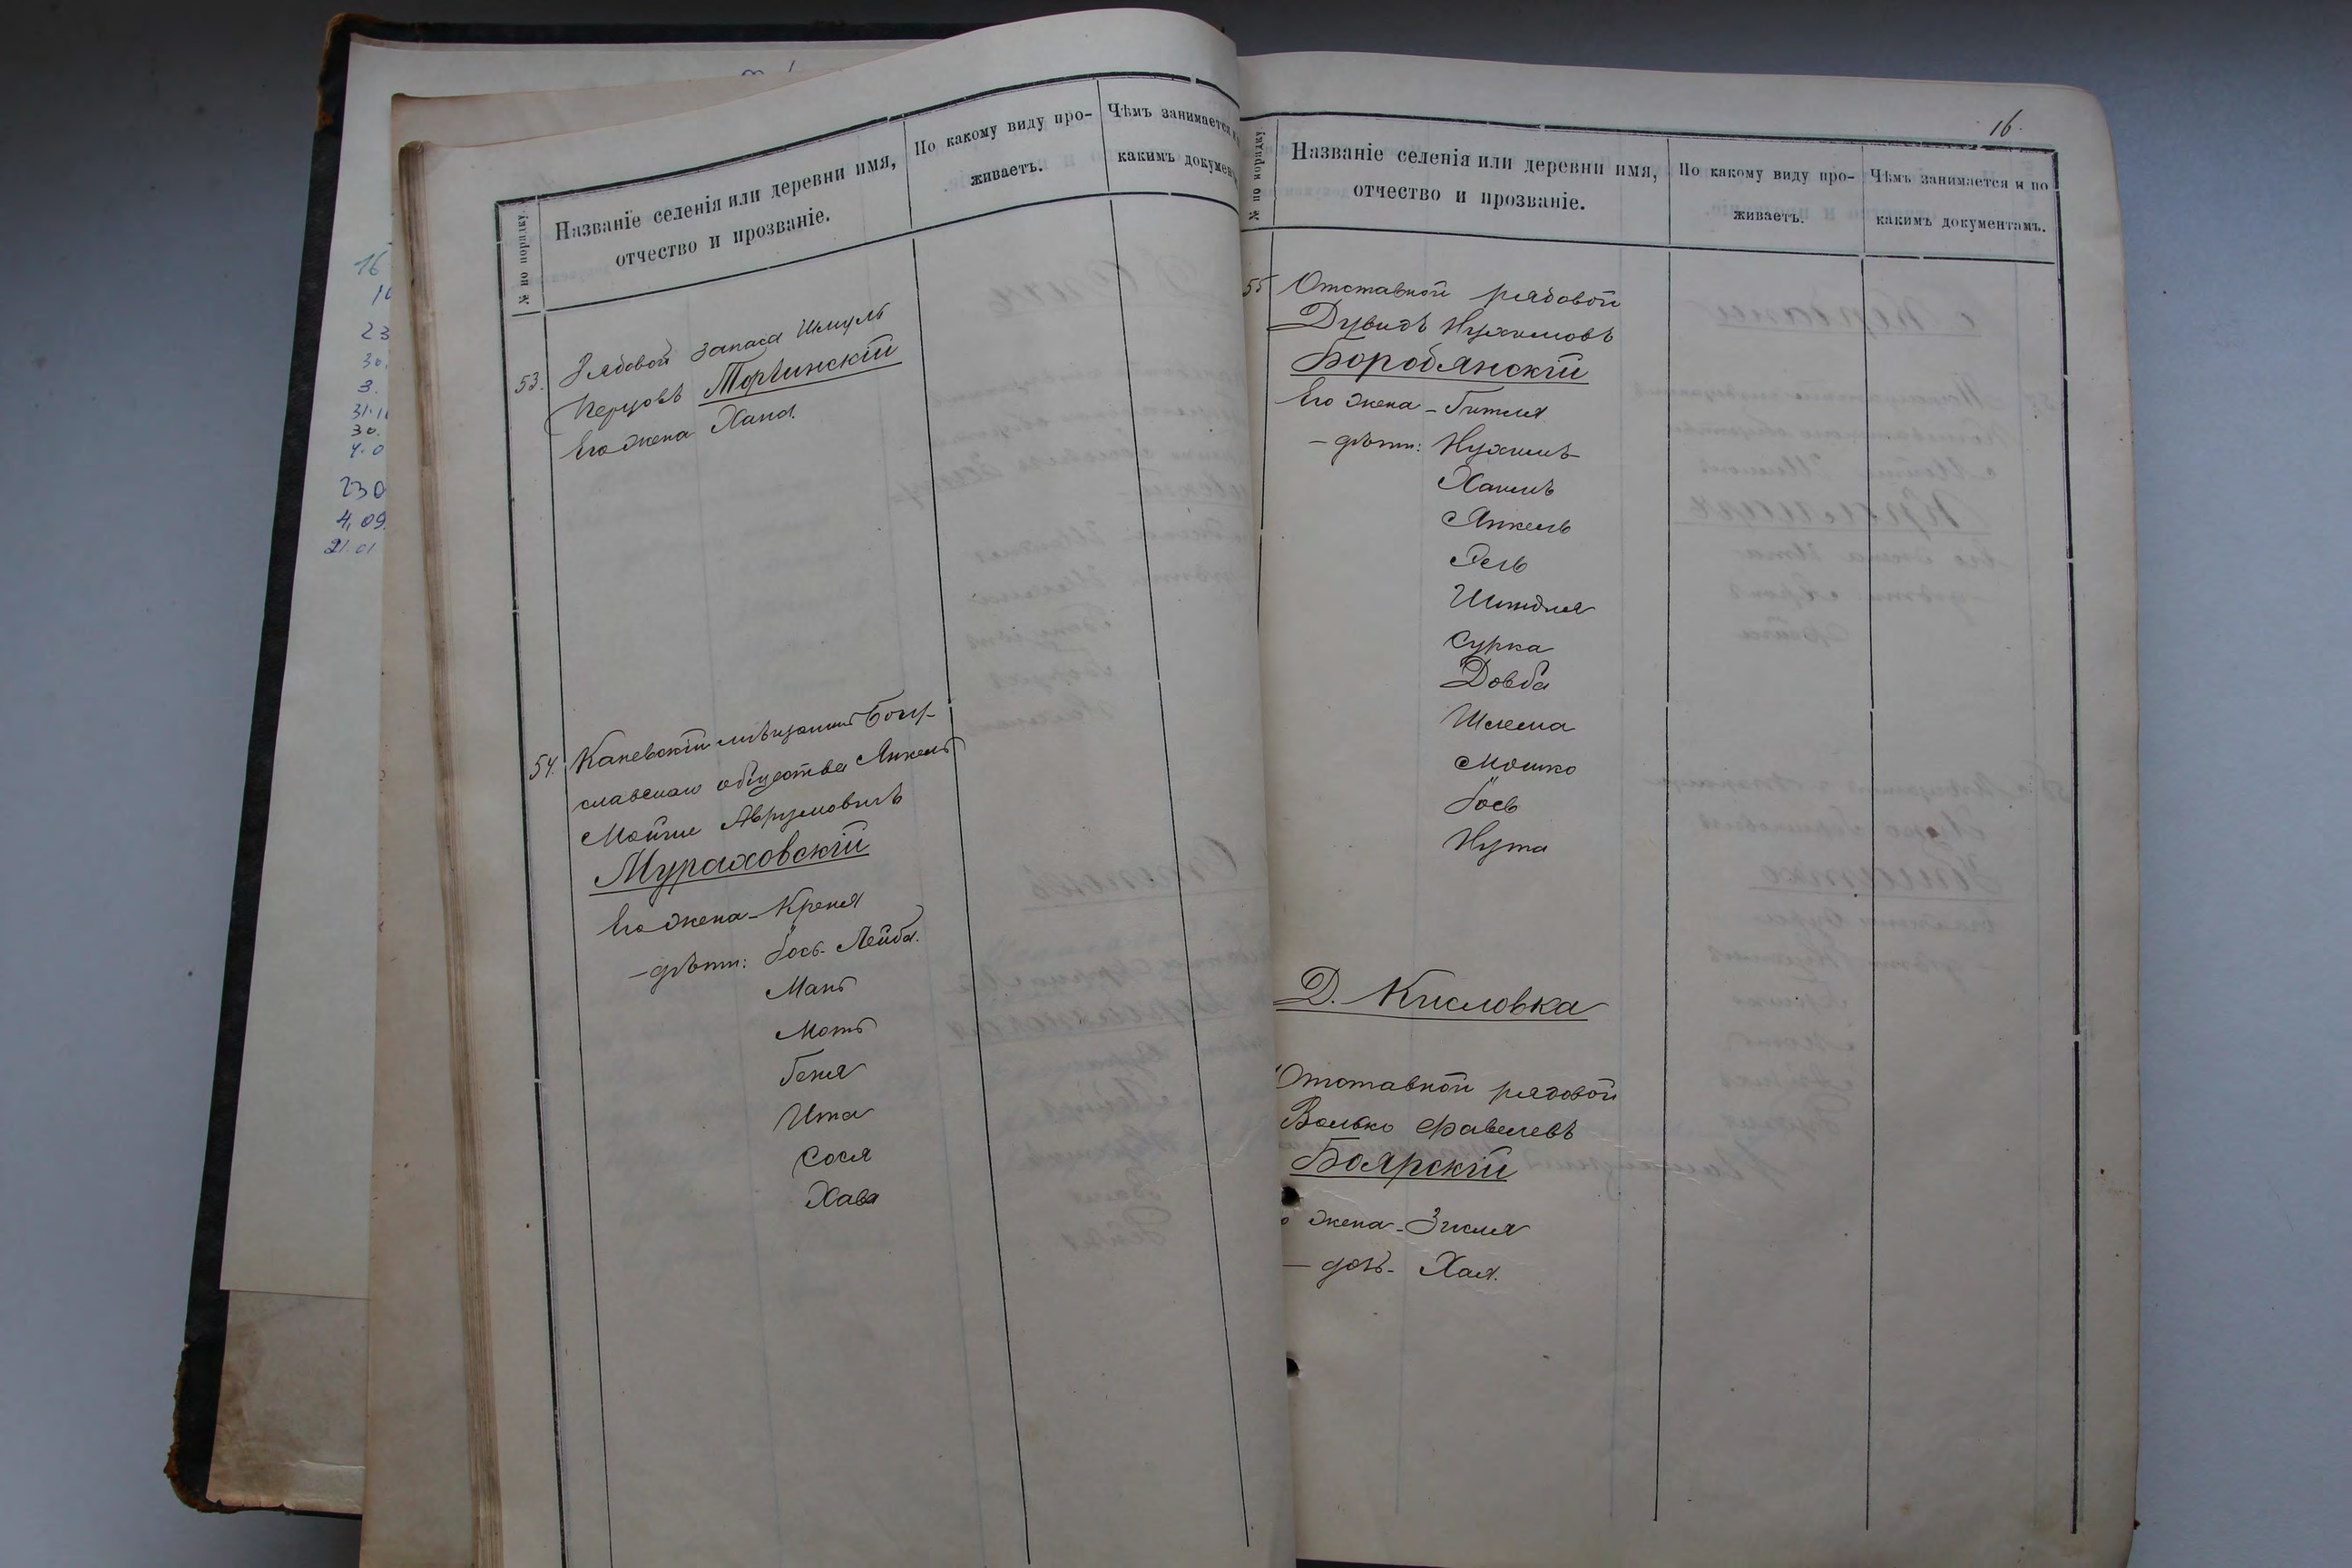 № по порядку.
Названіе селенія или деревни имя,
отчество и прозваніе.
По какому виду про-
живаетъ.
Чѣмъ занимается
какимъ
53. Рядовой запаса Шмуль
Перцовъ Торчинскій
Его жена Хана.
54. Каневскій мѣщанинъ Богу-
славскаго общества Янкель
Мойше Аврумовичъ
Мураховскій
Его жена - Креня
- дѣти: Іось-Лейба.
Маня
Мотя
Геня
Ита
Сося
Хава
16.
№ по порядку.
Названіе селенія или деревни имя,
отчество и прозваніе.
По какому виду про-
живаетъ.
Чѣмъ занимается и по
какимъ документамъ.
55 Отставной рядовой
Дувидъ Нухимовъ
Бородянскій
Его жена - Гитля
- дѣти: Нухимъ
Хаимъ
Янкель
Шиндля
Сурка
Довба
Шлема
Мошко
Іось
Нута
Д. Кисловка
Отставной рядовой
Волько Фавелевъ
Боярскій
жена - Зисля
- дочь - Хая.
16
23
30.
3.
30.
4.0
230
4.09.
21.01